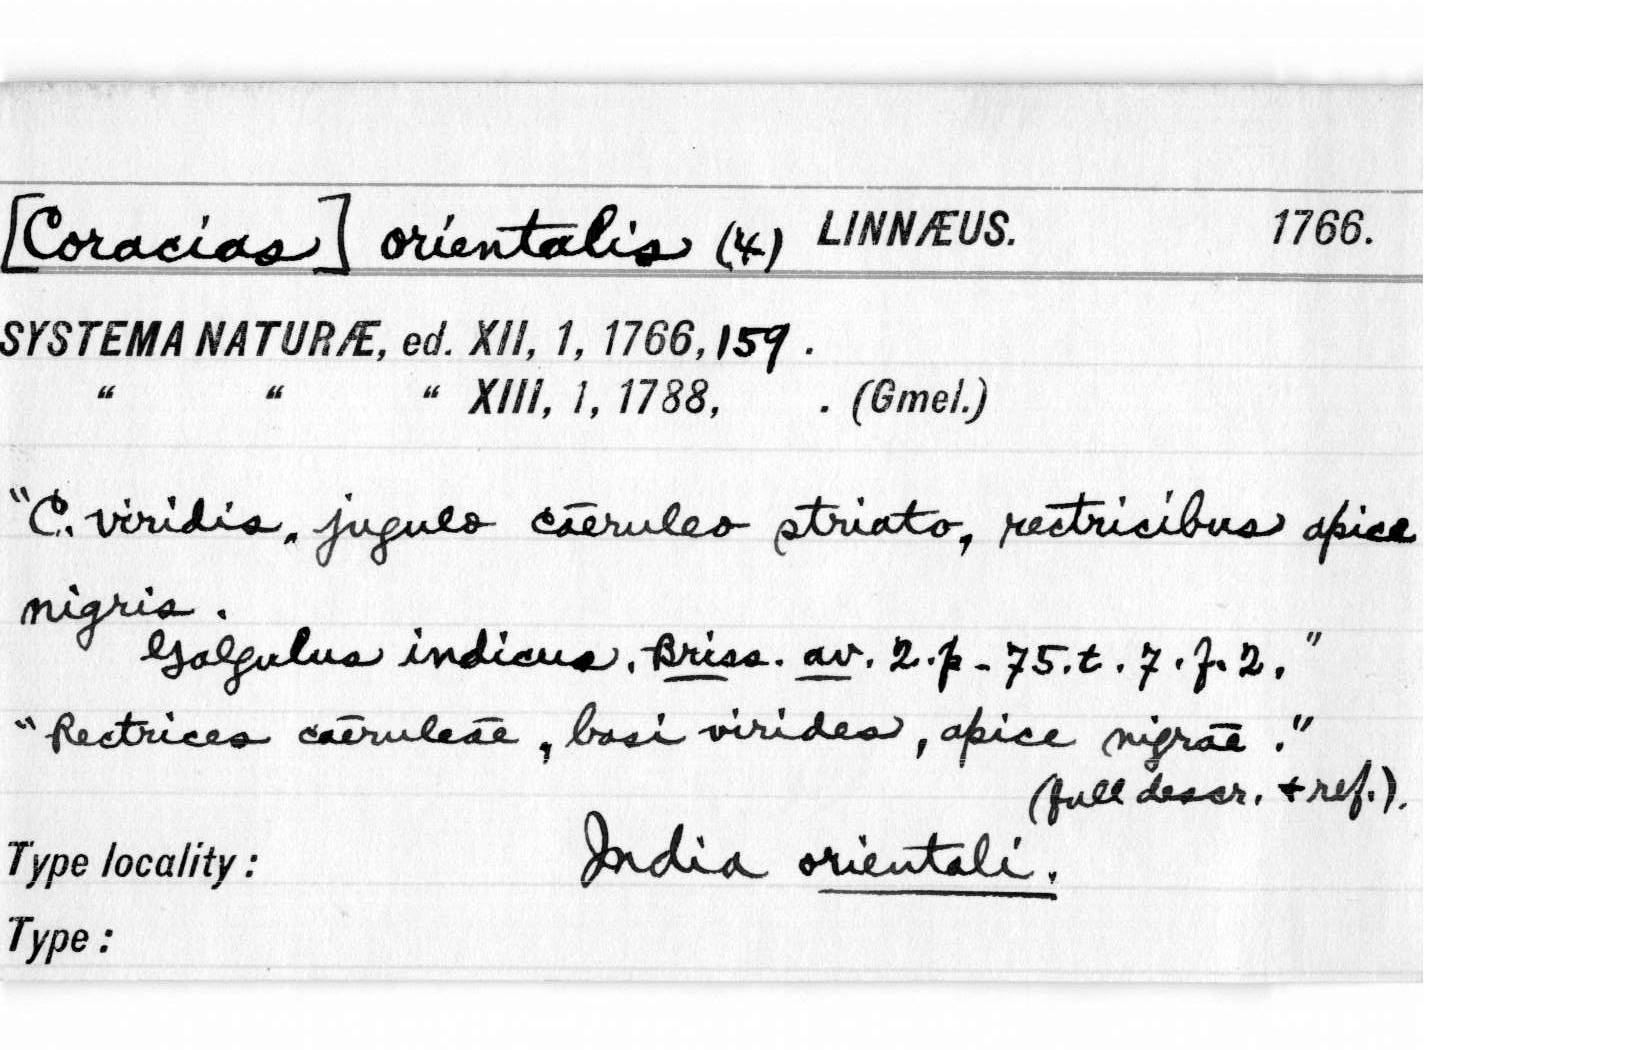 [Coracias] orientalis (4) LINNÆUS. 1766.
SYSTEMA NATURÆ, ed. XII, 1, 1766, 159.
“ “ “ XIII, 1, 1788, . (Gmel.)
"C. viridis, jugulo cāeruleo striato, rectricibus apice
nigris.
Galgulus indicus, Briss. av. 2. p - 75. t. 7. f. 2."
"Rectrices cāeruleāe, basi virides, apice nigrāe."
(full descr. + ref.).
Type locality: India orientali.
Type: